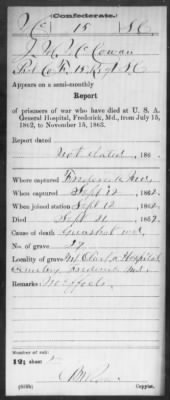 (Confederate.)
Mc 15 S.C.
J. W. McCowan
Pvt Co. F, 15 Regt S.C.
Appears on a semi-monthly
Report
of prisoners of war who have died at U. S. A.
General Hospital, Frederick, Md., from July 15,
1862, to November 15, 1863.
Report dated
Not dated, 186
Where captured Frederick
When captured Sept 12, 1862.
When joined station Sept 12, 1862.
Died Sept 21, 1862.
Cause of death Gunshot
No. of grave 29
Locality of grave Mt. Olivet Hospital
Cemetery Frederick Md.
Remarks: No effects
Number of roll:
12; sheet
(639b) Copyist.